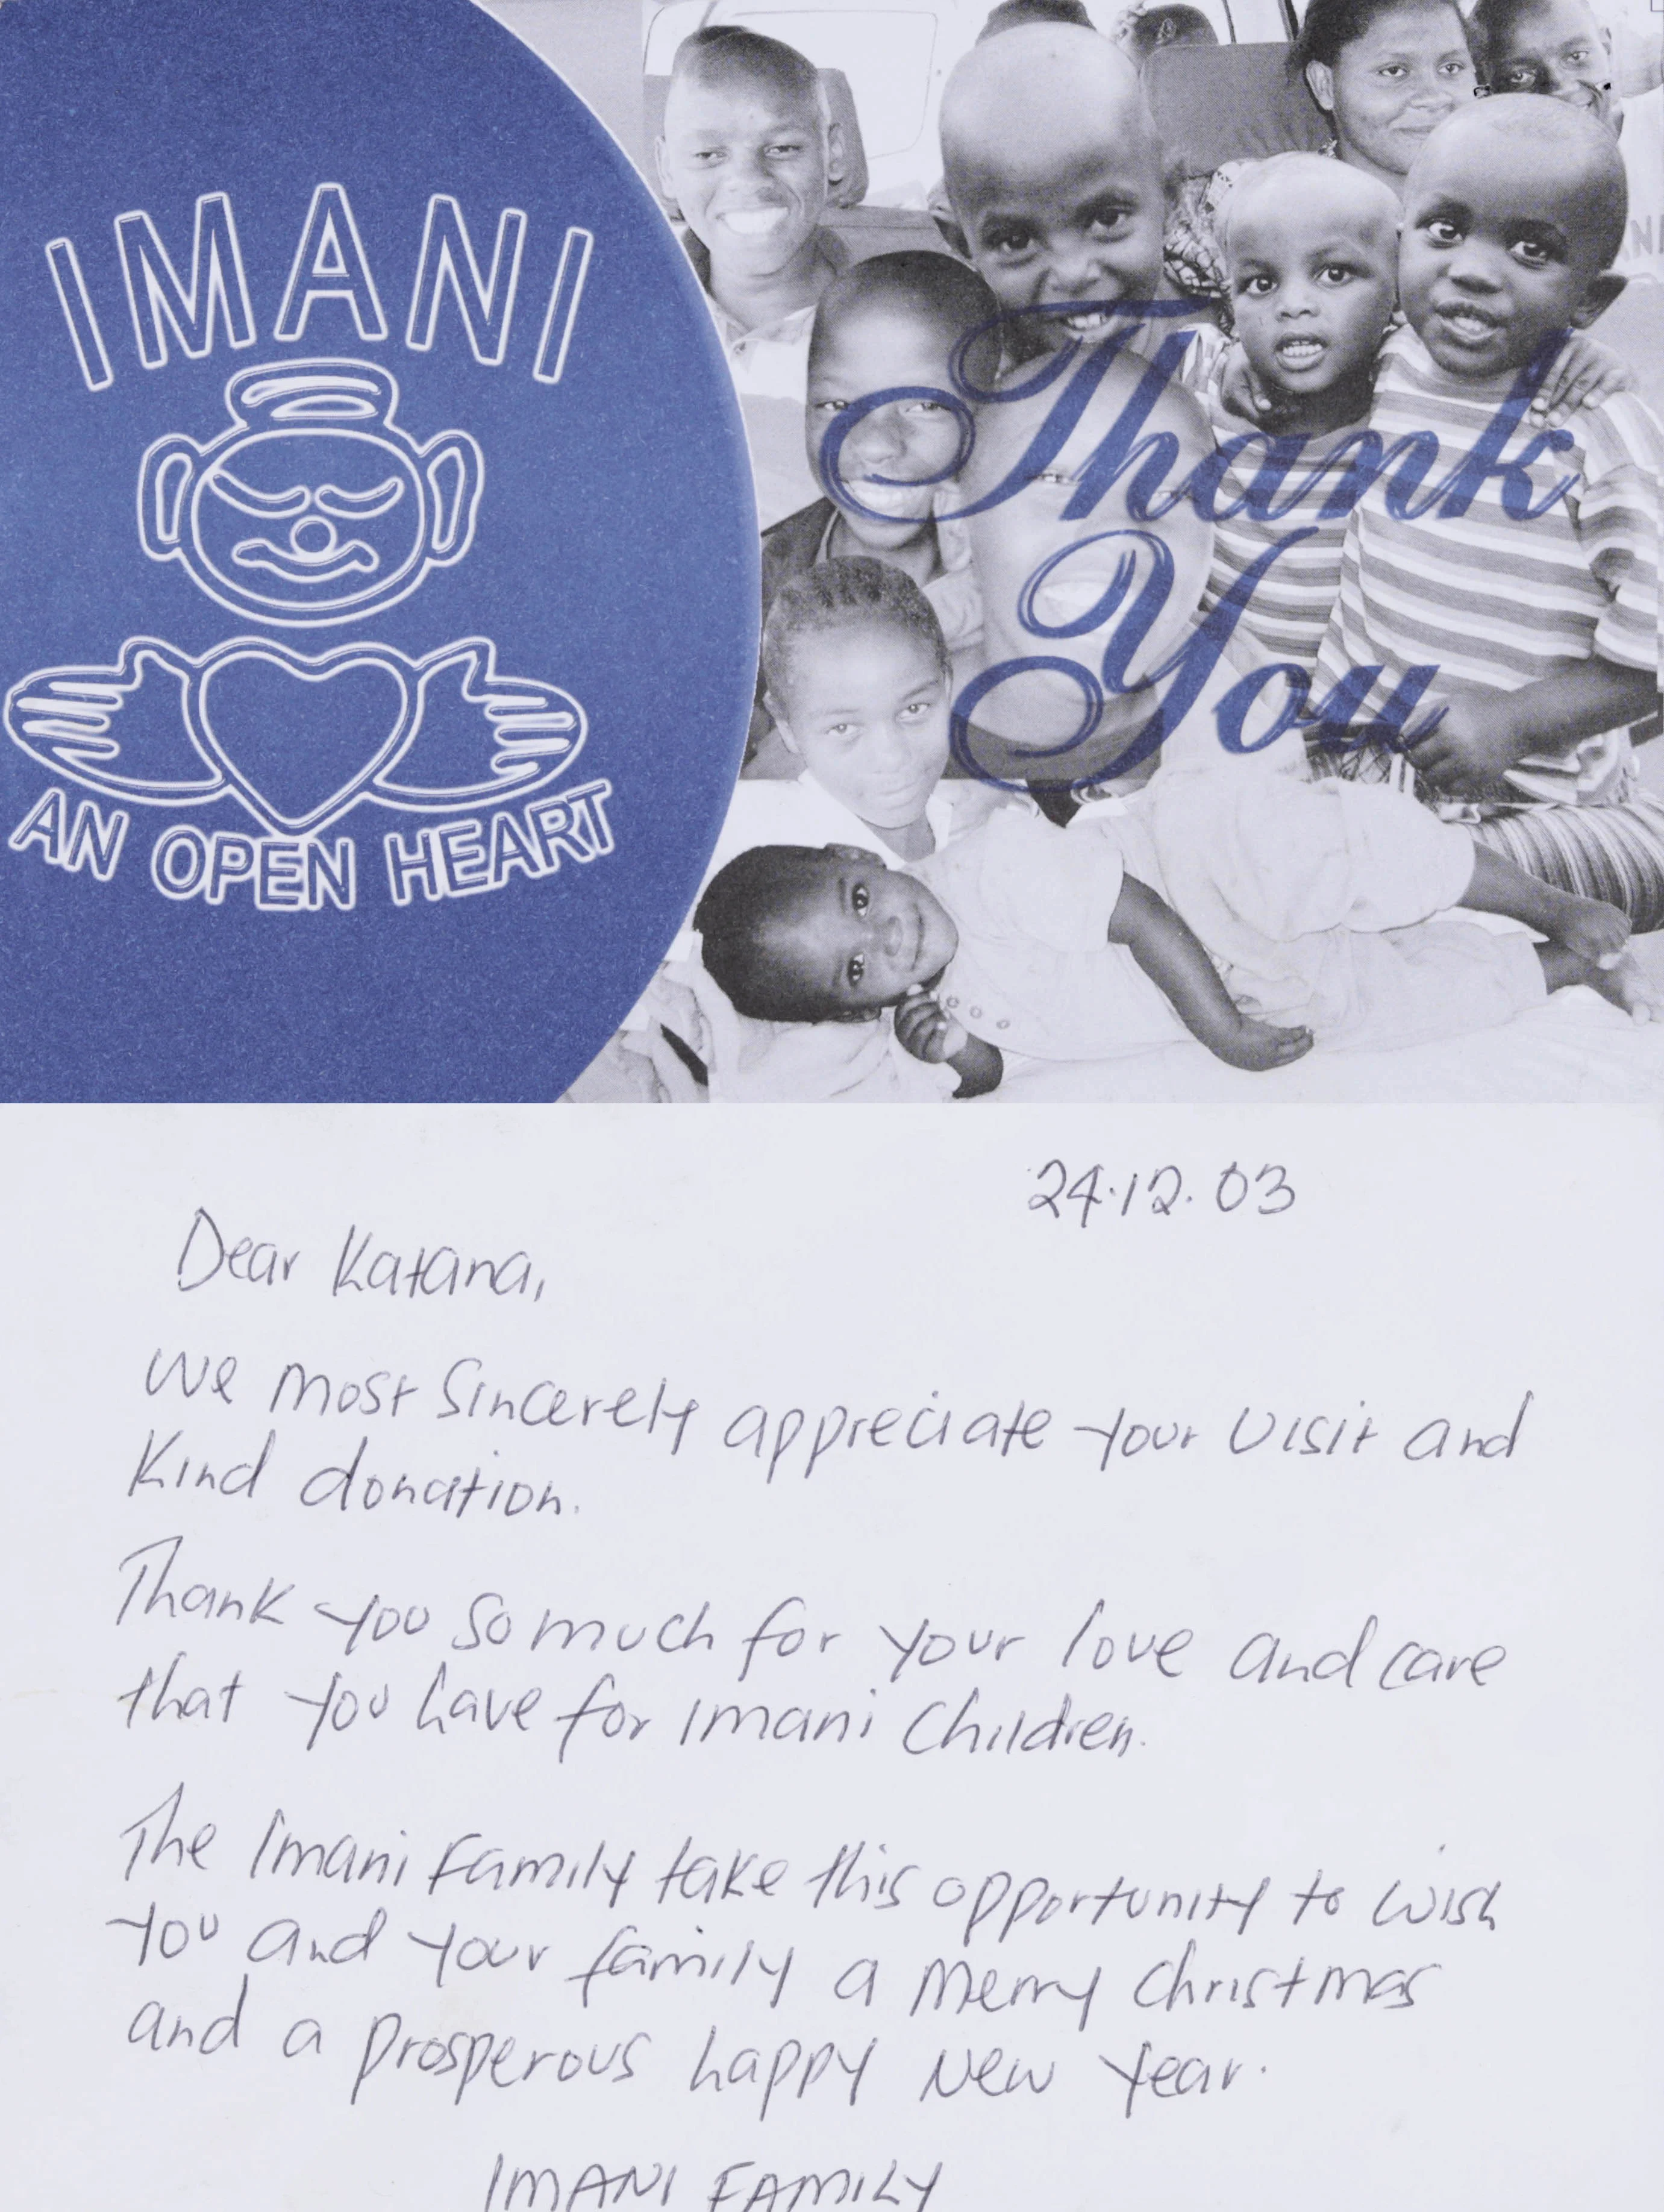 IMANI
AN OPEN HEART
Thank
You
24.12.03
Dear Katana,
We most Sincerely appreciate your visit and
Kind donation.
Thank you so much for your love and care
that you have for Imani Children.
The Imani Family take this opportunity to wish
you and your family a Merry Christmas
and a prosperous happy New Year.
IMANI FAMILY